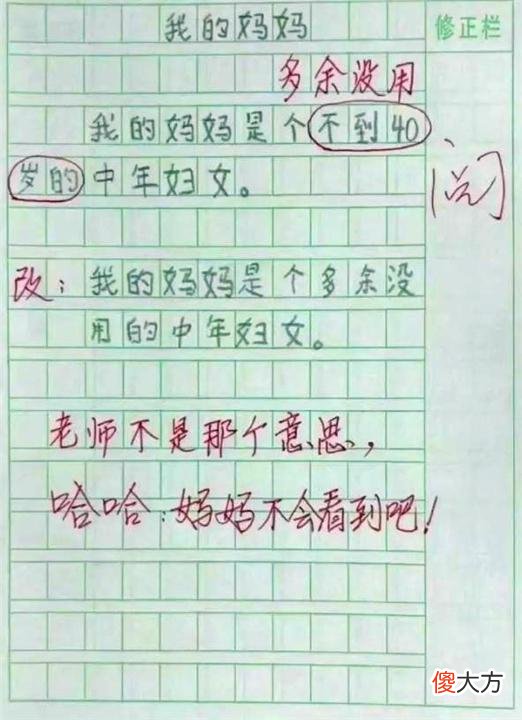 我的妈妈
修正栏
多余没用
我的妈妈是个不到40
岁的中年妇女。
阅
改：我的妈妈是个多余没
用的中年妇女。
老师不是那个意思，
哈哈：妈妈不会看到吧！
傻大方